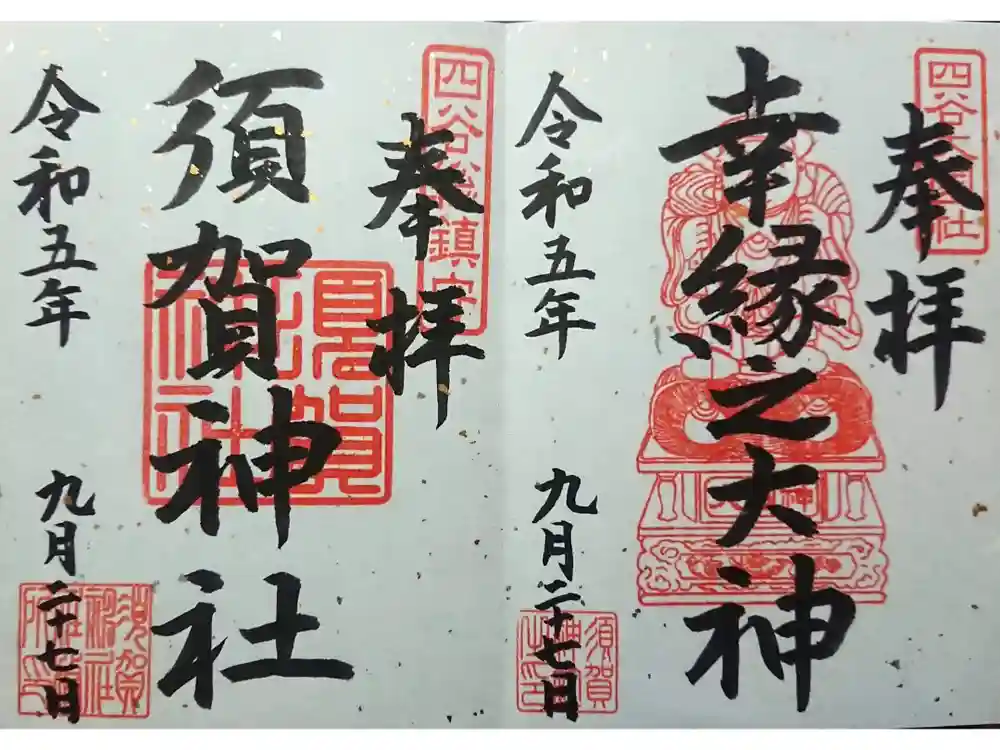 四谷
奉拝
幸縁之大神
令和五年
九月二十七日
須賀
四谷總鎮守
奉拝
須賀神社
須賀神社
令和五年
九月二十七日
須賀